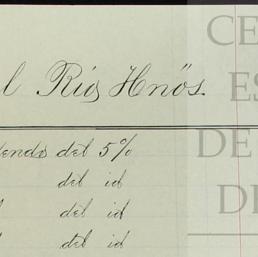 l Río Hnõs.
dendo del 5%
del id
del id
del id
CE
ES
DE
DE